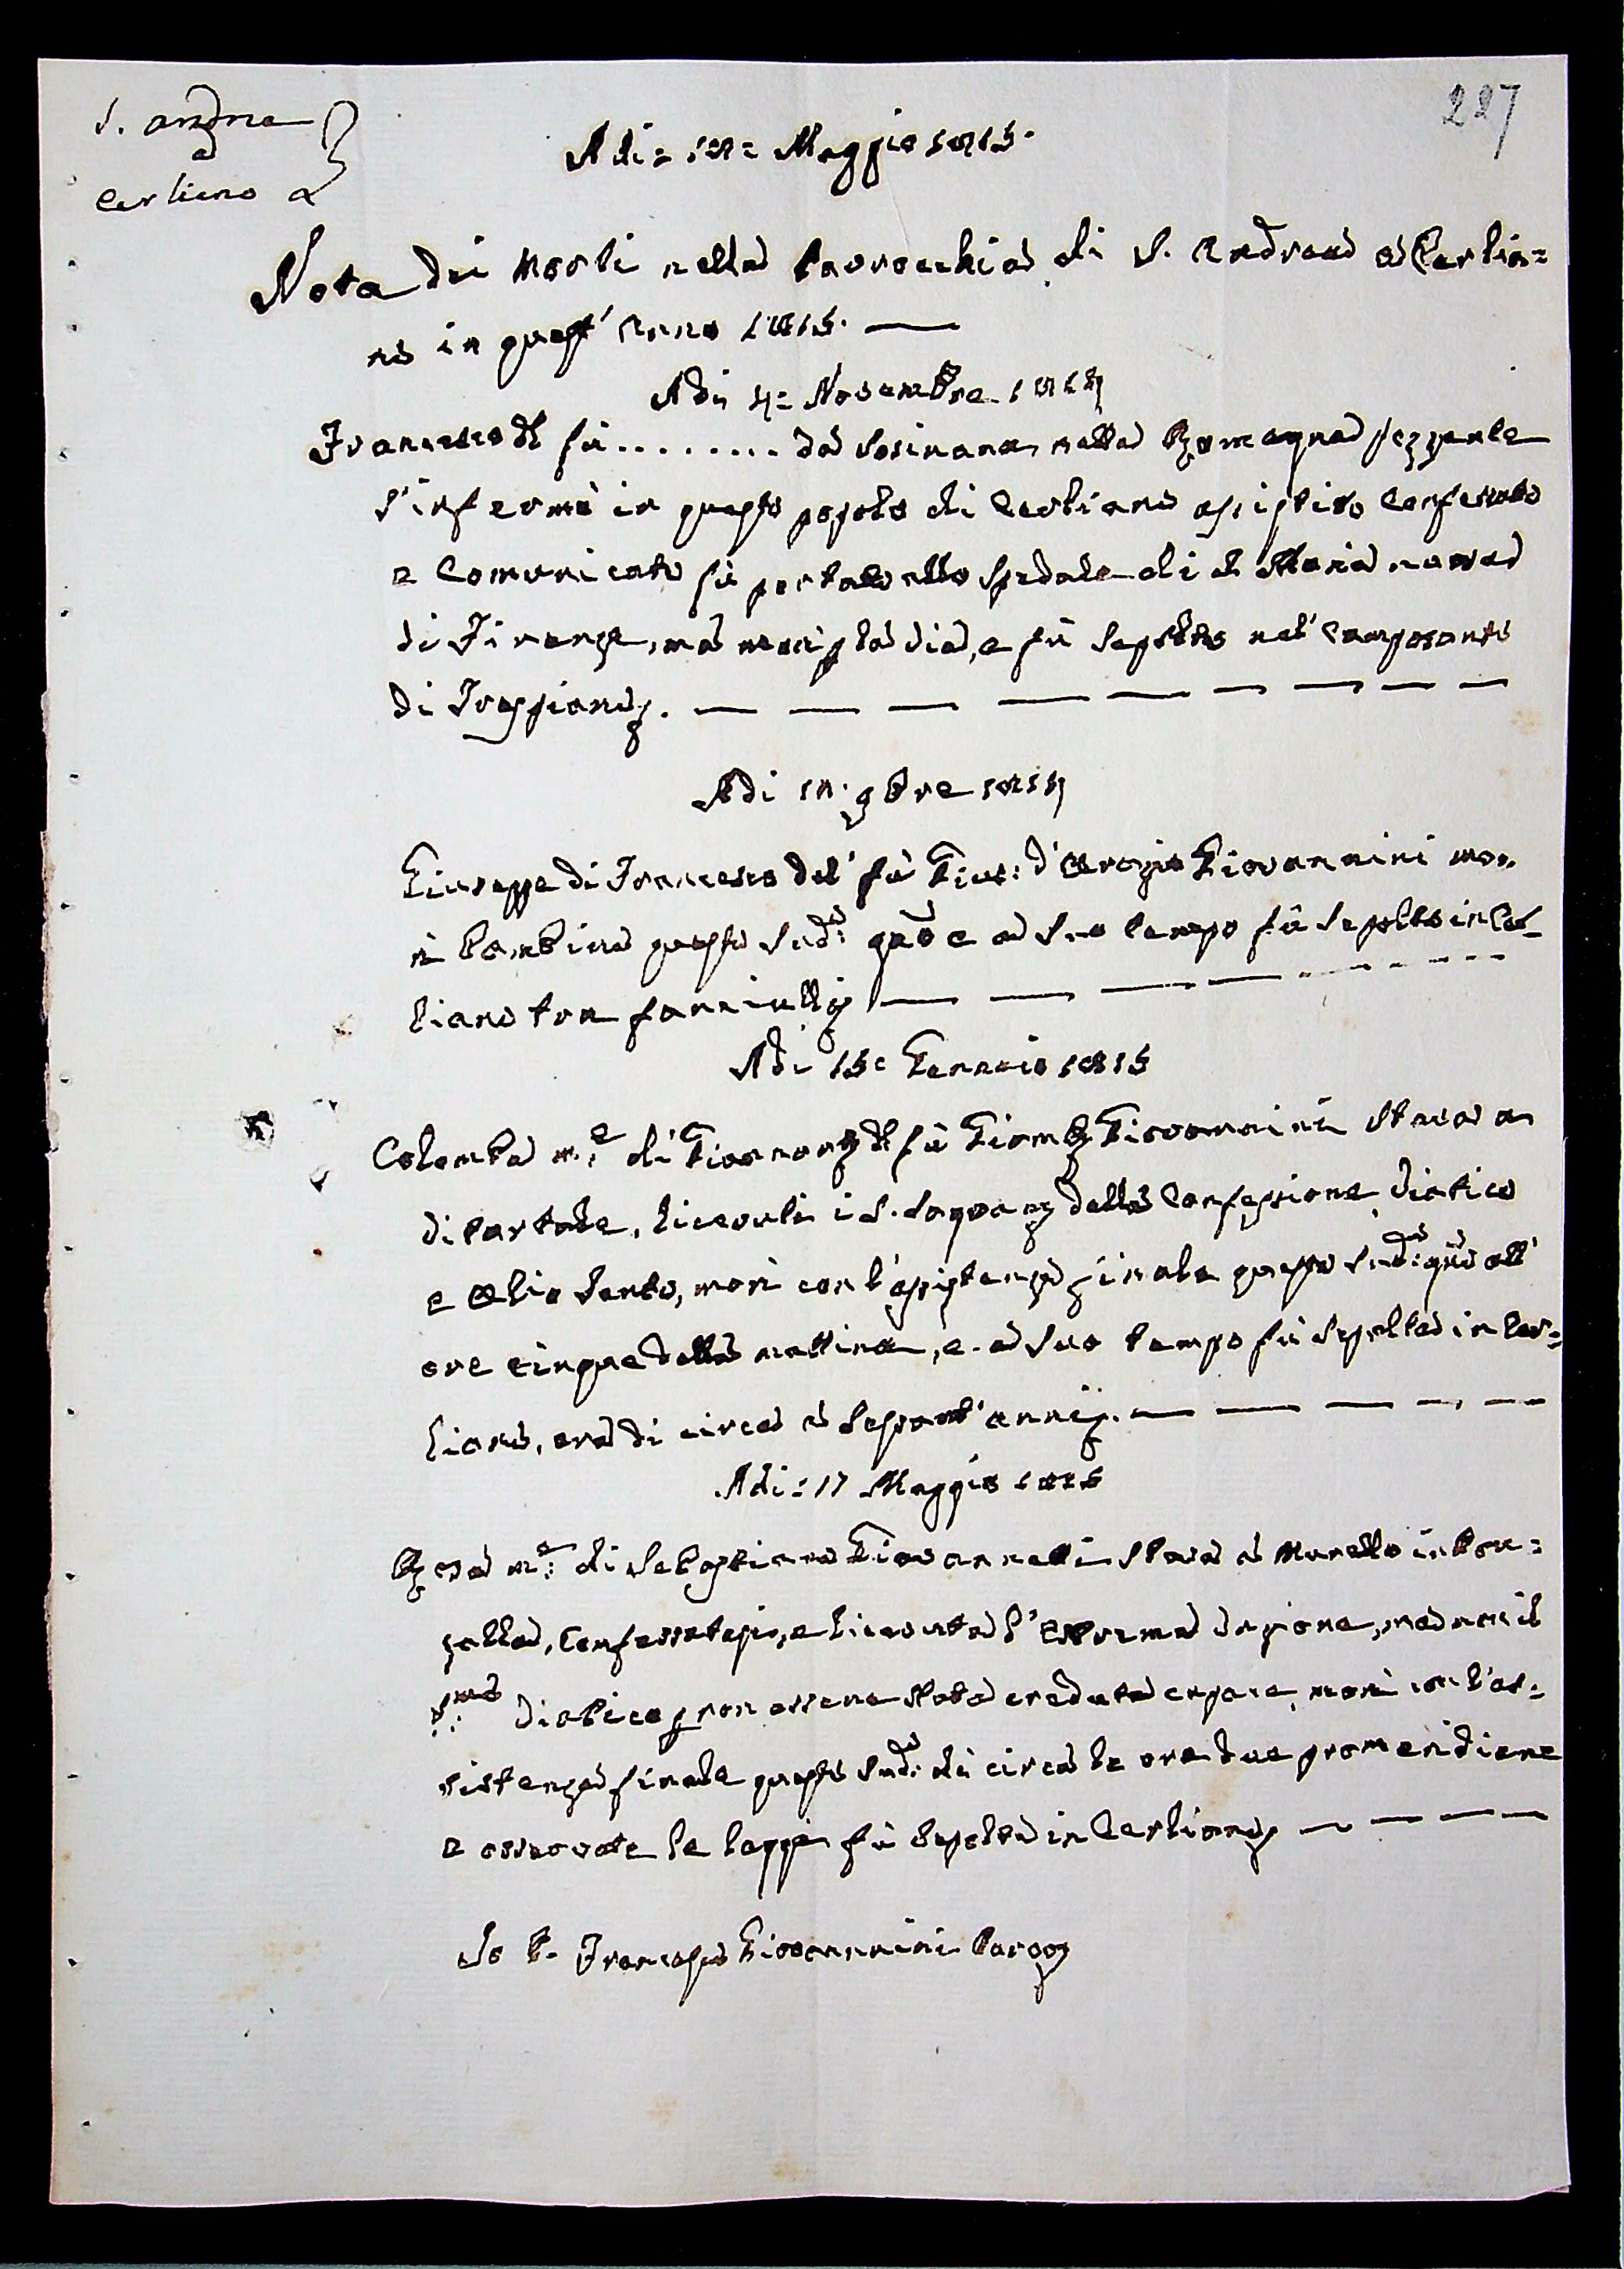 227
S. Andrea
a
Certiano
Adi = 18 = Maggio 1815.
Nota dei Morti nella Parrocchia di S. Andrea a Certia=
no in quest' Anno 1815.
Adi 4 = Novembre 1814
Francesco del fù ........ da nella pezzente
s'infermò in questo popolo di Certiano assistito Confessato
e Comunicato fù portato allo Spedale di S. Maria nuova
di Firenze, ma morì p la via, e fù sepolto nel' Camposanto
di
Adi 18. 9bre 1814
Giuseppe di Francesco del' fù Gius: d' Giovannini mo-
rì bambino questo Sud: e a Suo tempo fù Sepolto in Cer=
tiano tra fanciulli
Adi 15 = Gennaio 1815
Colomba m.e di del fù Giovannini Stava a
, Ricevuti i S. Sagram della Confessione, Viatico
e Olio Santo, morì con l'assistenza finale questo Sud: all'
ore cinque della mattina, e a Suo tempo fù Sepolta in Cer=
tiano, era di circa a anni.
Adi = 17 Maggio 1815
Rosa m.e di Sebastiano Giovannetti Stava a
, Confessatasi, e Ricevuta l' Estrema Unzione, ma non il
S.mo Viatico p non essere Stata creduta capace, morì con l'as=
sistenza finale questo Sud: dì circa le ore due promeridiane
e osservate le leggi fù Sepolta in Certiano
Io P. Francesco Giovannini Parroco